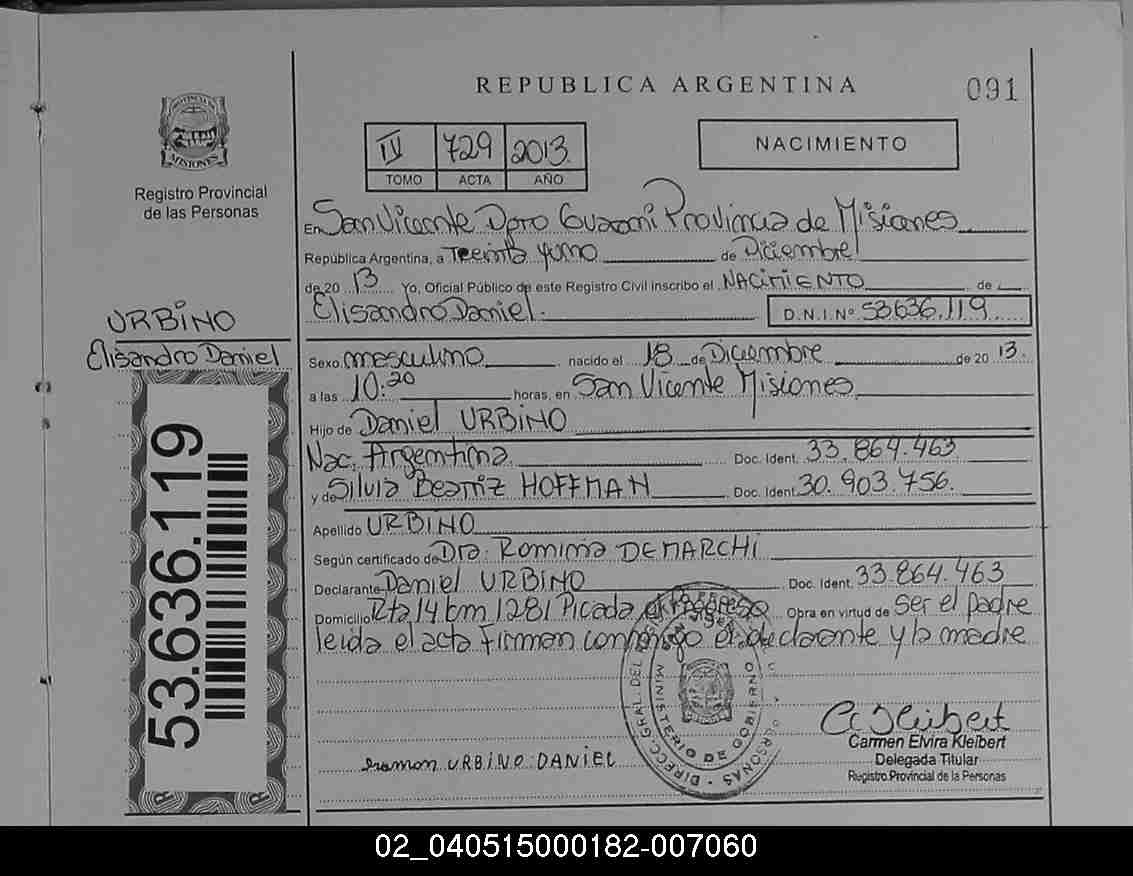 REPUBLICA ARGENTINA
091
PROVINCIA DE
MISIONES
Registro Provincial
de las Personas
IV 729 2013
TOMO ACTA AÑO
NACIMIENTO
En San Vicente Dpto Guarani Provincia de Misiones
República Argentina, a Treinta y uno de Diciembre
de 20 13 Yo, Oficial Público de este Registro Civil inscribo el NACIMIENTO de
Elisandro Daniel. D.N.I. Nº 53.636.119
URBINO
Elisandro Daniel
53.636.119
Sexo masculino nacido el 18 de Diciembre de 20 13.
a las 10:20 horas, en San Vicente Misiones
Hijo de Daniel URBINO
Nac. Argentina Doc. Ident. 33.864.463
y de Silvia Beatriz HOFFMAN Doc. Ident. 30.903.756.
Apellido URBINO
Según certificado de Dra. Romina DEMARCHI
Declarante Daniel URBINO Doc. Ident. 33.864.463
Domicilio Rta 14 km 1281 Picada Obra en virtud de ser el padre
leida el acta firman conmigo el declarante y la madre
DIRECC. GRAL. DEL PERSONAS
MINISTERIO DE GOBIERNO
Carmen Elvira Kleibert
Delegada Titular
Registro Provincial de la Personas
URBINO DANIEL
02_040515000182-007060